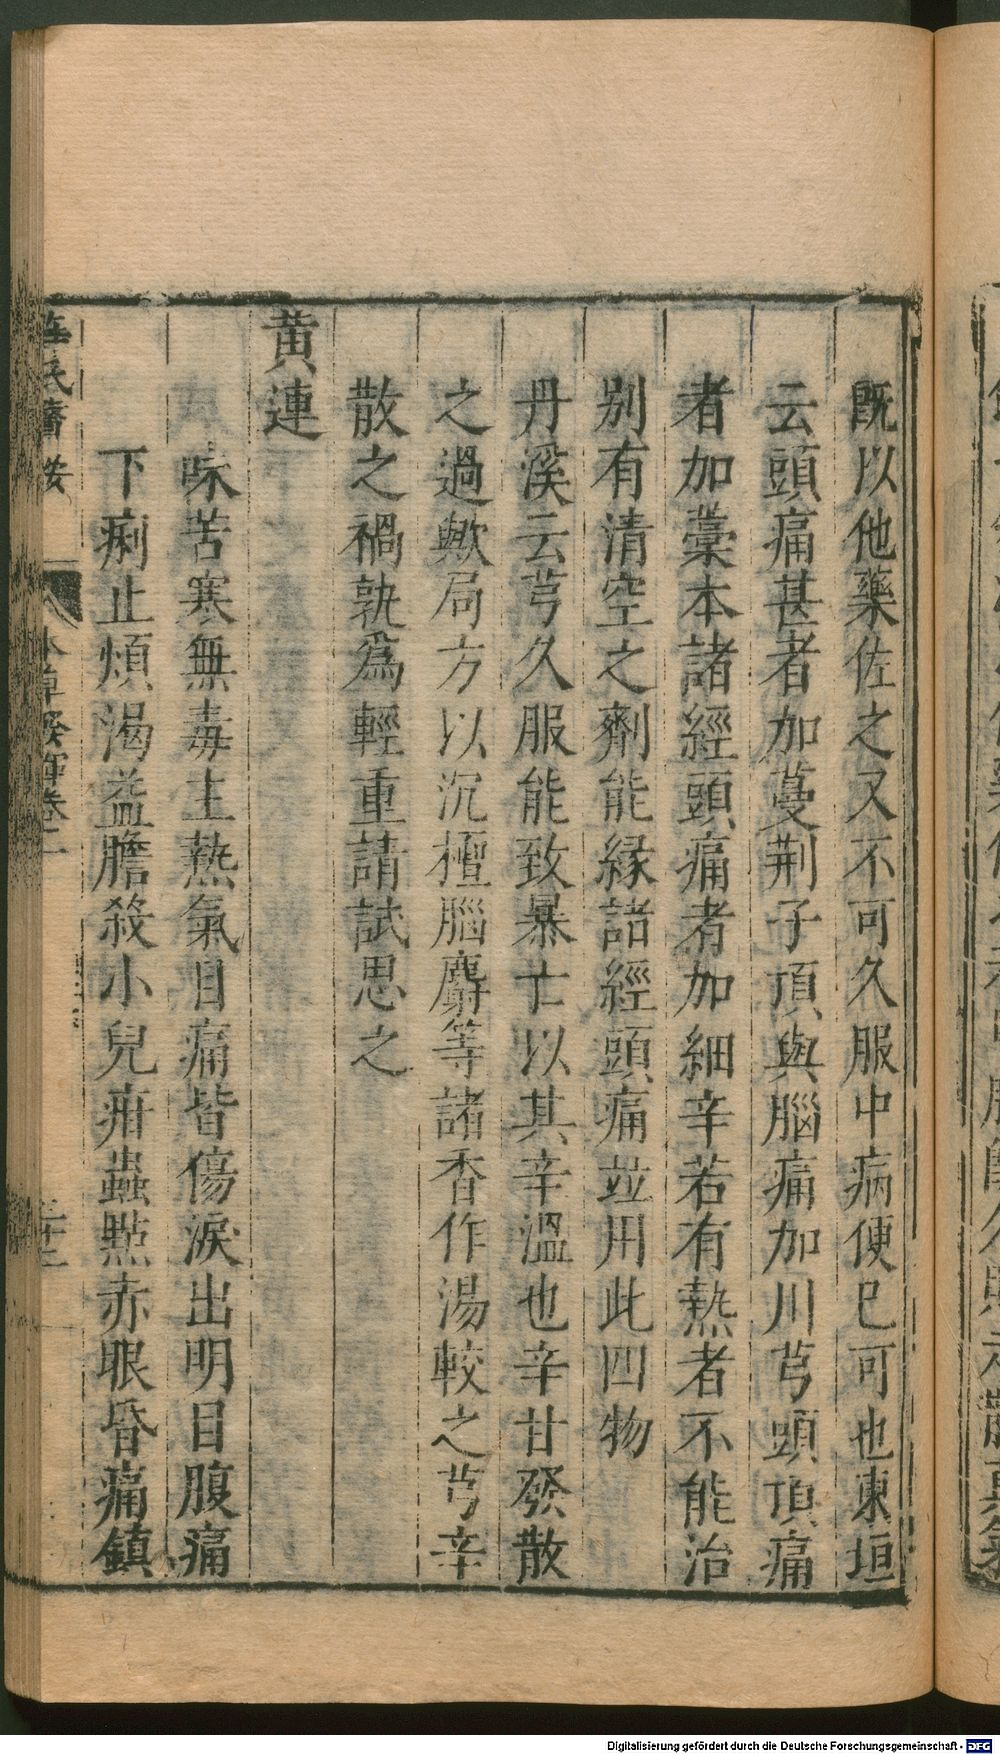 既以他藥佐之又不可久服中病便已可也東垣
云頭痛甚者加蔓荆子頂與腦痛加川芎頭頂痛
者加藁本諸經頭痛者加細辛若有熱者不能治
别有清空之劑能緣諸經頭痛竝用此四物
丹溪云芎久服能致暴亡以其辛溫也辛甘發散
之過歟局方以沉檀腦麝等諸香作湯較之芎辛
散之禍孰爲輕重請試思之
黄連
味苦寒無毒主熱氣目痛眥傷淚出明目腹痛
下痢止煩渴益膽殺小兒疳蟲點赤眼昏痛鎮
本草發揮卷二
Digitalisierung gefördert durch die Deutsche Forschungsgemeinschaft - DFG